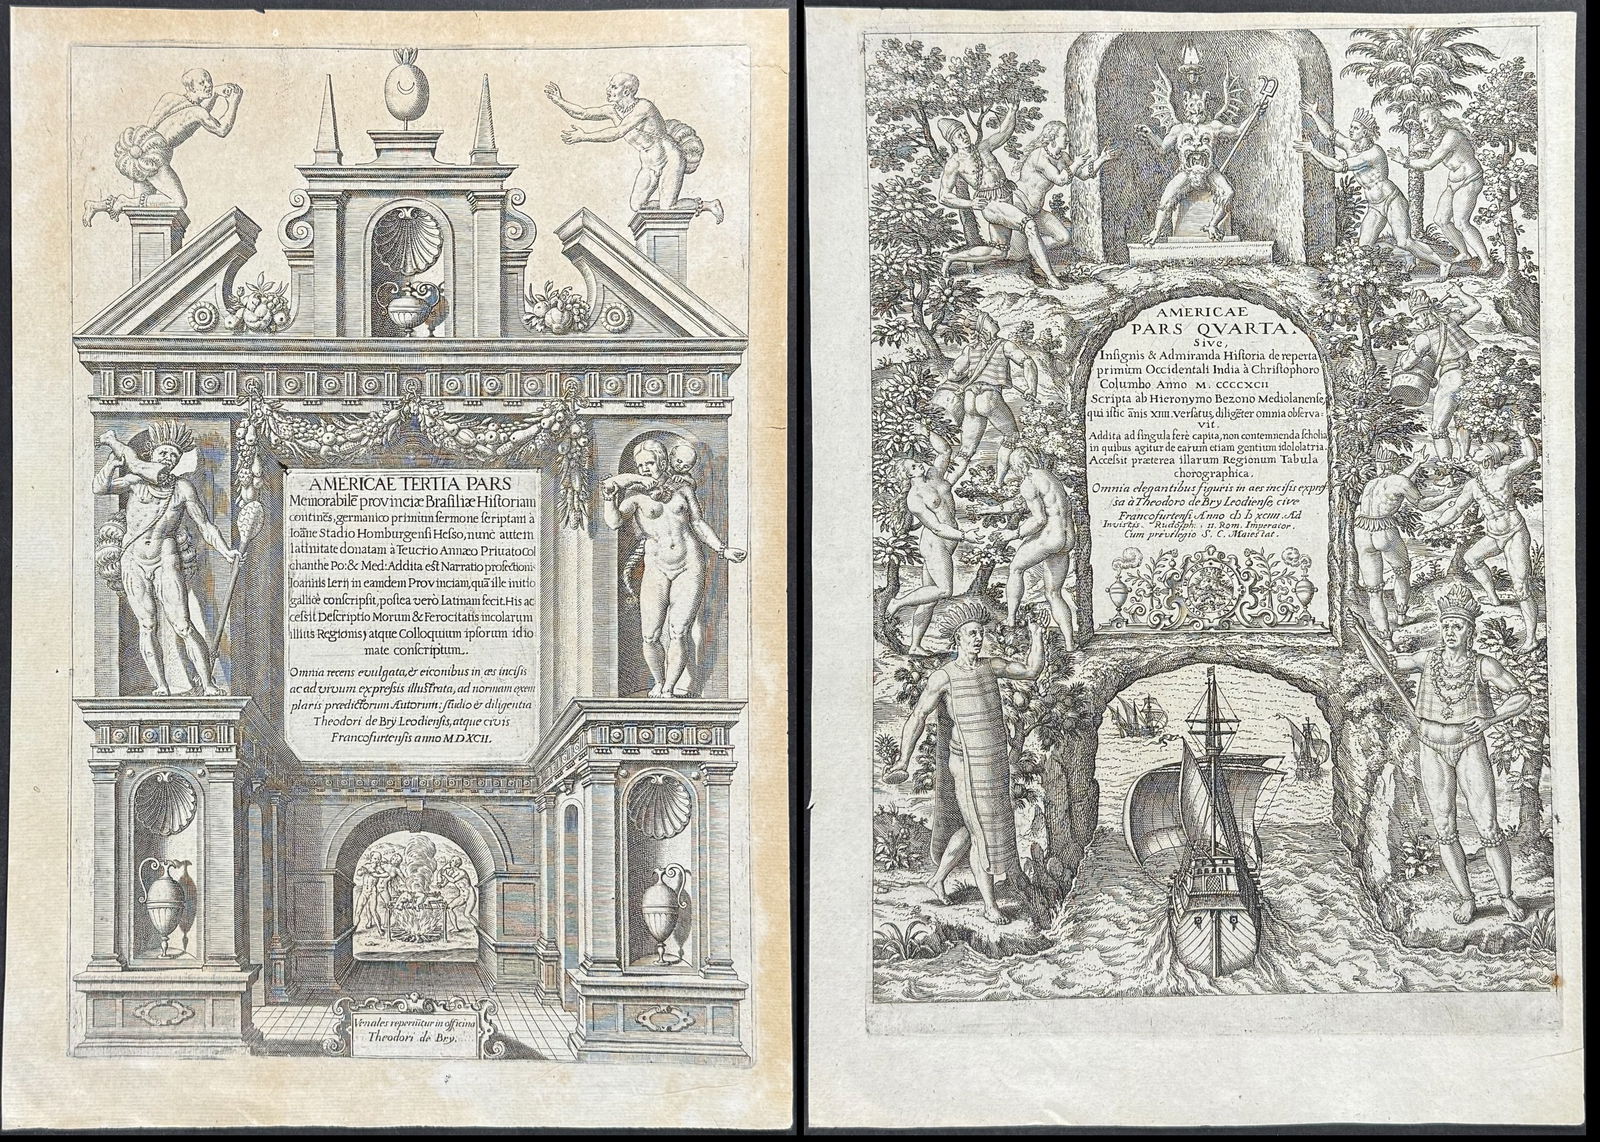 AMERICAE TERTIA PARS
Memorabilē provinciæ Brasiliæ Historiam
continēs, germanico primùm sermone scriptam à
Ioāne Stadio Homburgensi Hesso, nunc autem
latinitate donatam à Teucrio Annæo Priuato Col
chanthe Po: & Med: Addita est Narratio profectionis
Ioannis Lerij in eamdem Provinciam, quā ille initio
gallicè conscripsit, postea verò Latinam fecit. His ac
cessit Descriptio Morum & Ferocitatis incolarum
illius Regionis, atque Colloquium ipsorum idio
mate conscriptum.
Omnia recens evulgata, & eiconibus in æs incisis
ac ad vivum expressis illustrata, ad normam exem
plaris prædictorum Autorum: studio & diligentia
Theodori de Brÿ Leodiensis, atque civis
Francofurtensis anno MDXCII.
Venales reperiūtur in officina
Theodori de Bry.
AMERICAE
PARS QVARTA.
Sive,
Insignis & Admiranda Historia de reperta
primùm Occidentali India à Christophoro
Columbo Anno M. CCCCXCII
Scripta ab Hieronymo Bezono Mediolanense,
qui istic ānis XIIII. versatus, diligēter omnia observa:
vit.
Addita ad singula ferè capita, non contemnenda scholia,
in quibus agitur de earum etiam gentium idololatria.
Accessit præterea illarum Regionum Tabula
chorographica.
Omnia elegantibus figuris in æs incisis expres
sa à Theodoro de Bry Leodiense, cive
Francofurtensi Anno
Ad
Invictis. Rudolph. II. Rom. Imperator.
Cum privilegio S. C. Maiestat.